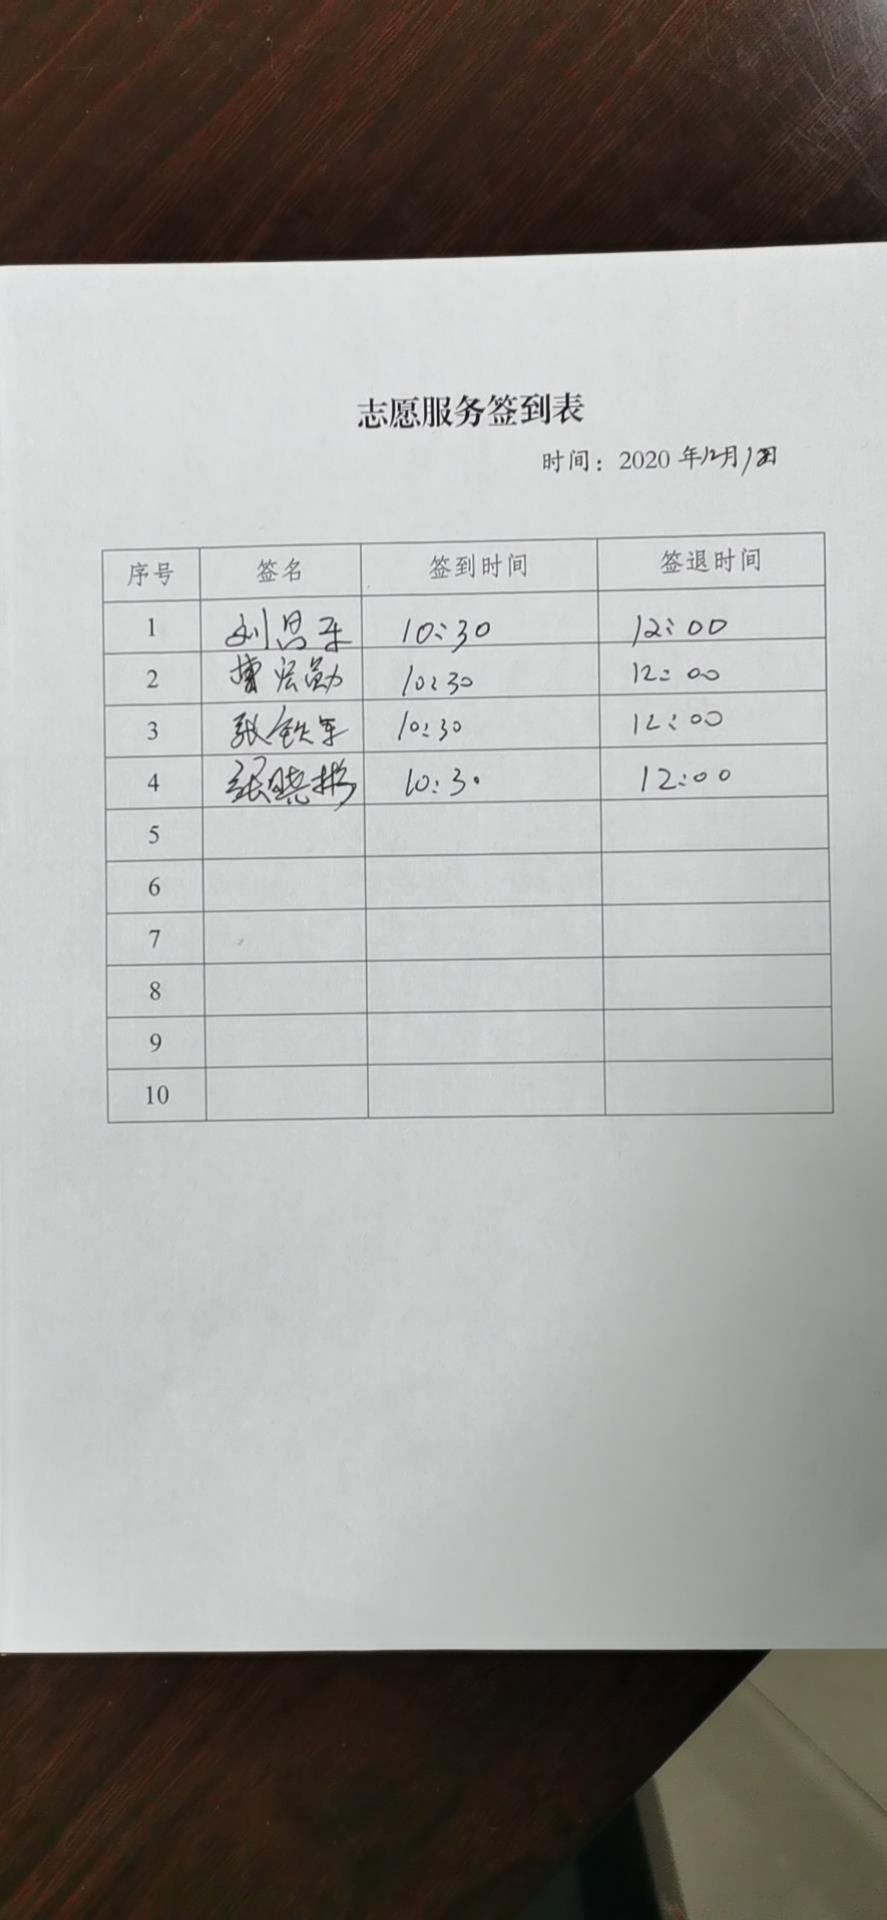 志愿服务签到表
时间：2020年12月1日
序号 签名 签到时间 签退时间
1 刘昌军 10:30 12:00
2 曹宏勋 10:30 12:00
3 张铁军 10:30 12:00
4 张晓彬 10:30 12:00
5
6
7
8
9
10